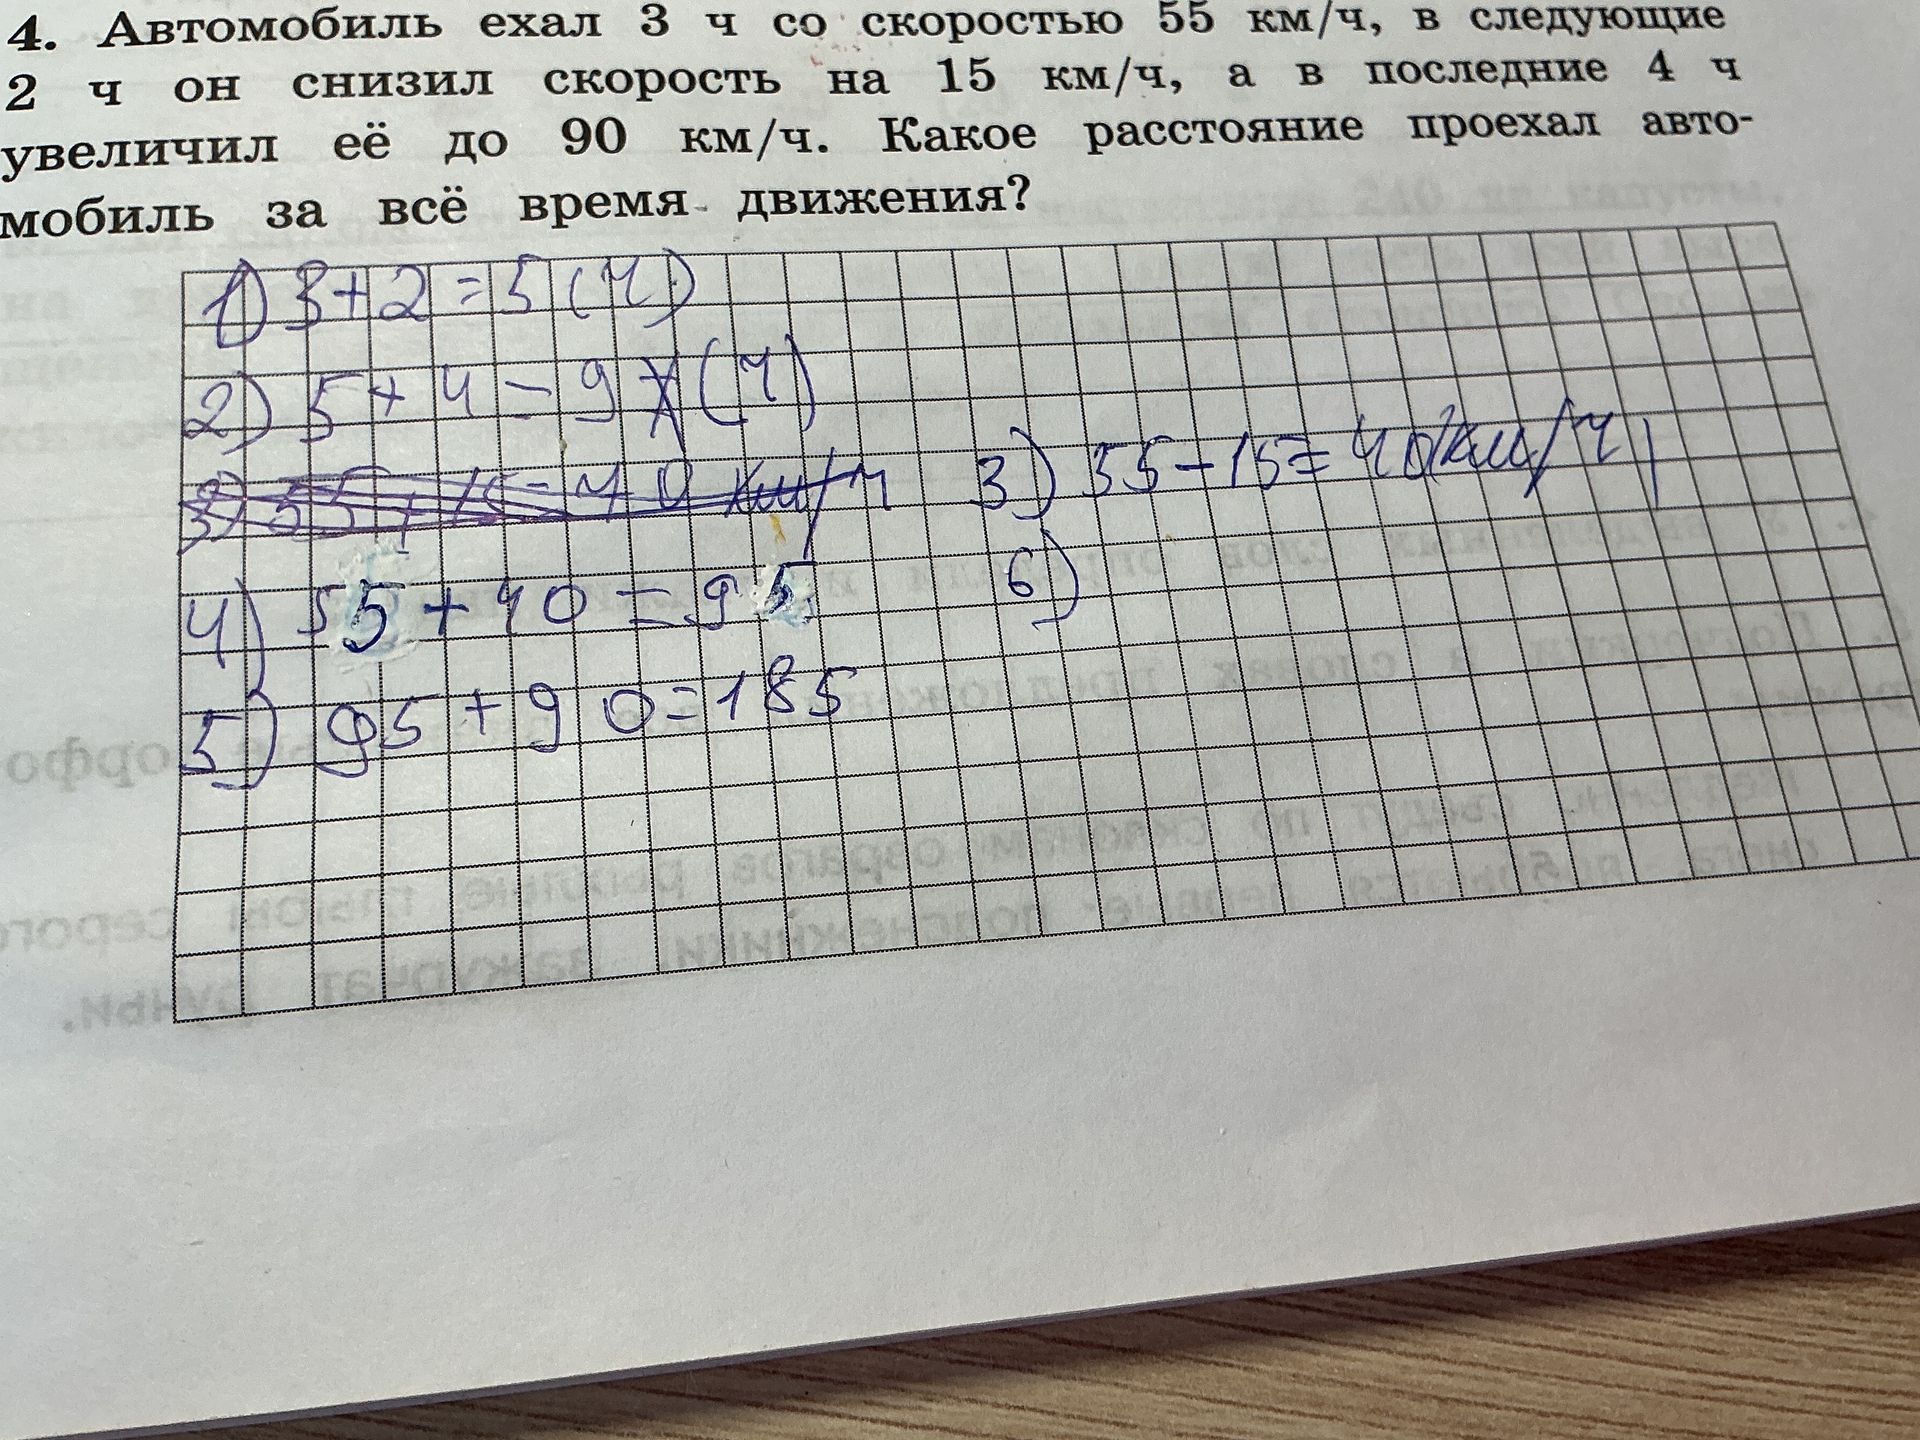 4. Автомобиль ехал 3 ч со скоростью 55 км/ч, в следующие
2 ч он снизил скорость на 15 км/ч, а в последние 4 ч
увеличил её до 90 км/ч. Какое расстояние проехал авто-
мобиль за всё время движения?
1) 3+2=5 (ч)
2) 5+4-9 (ч)
3) 55-15=40 км/ч
3) 55-15=40(км/ч)
4) 55+40=95
6)
5) 95+90=185